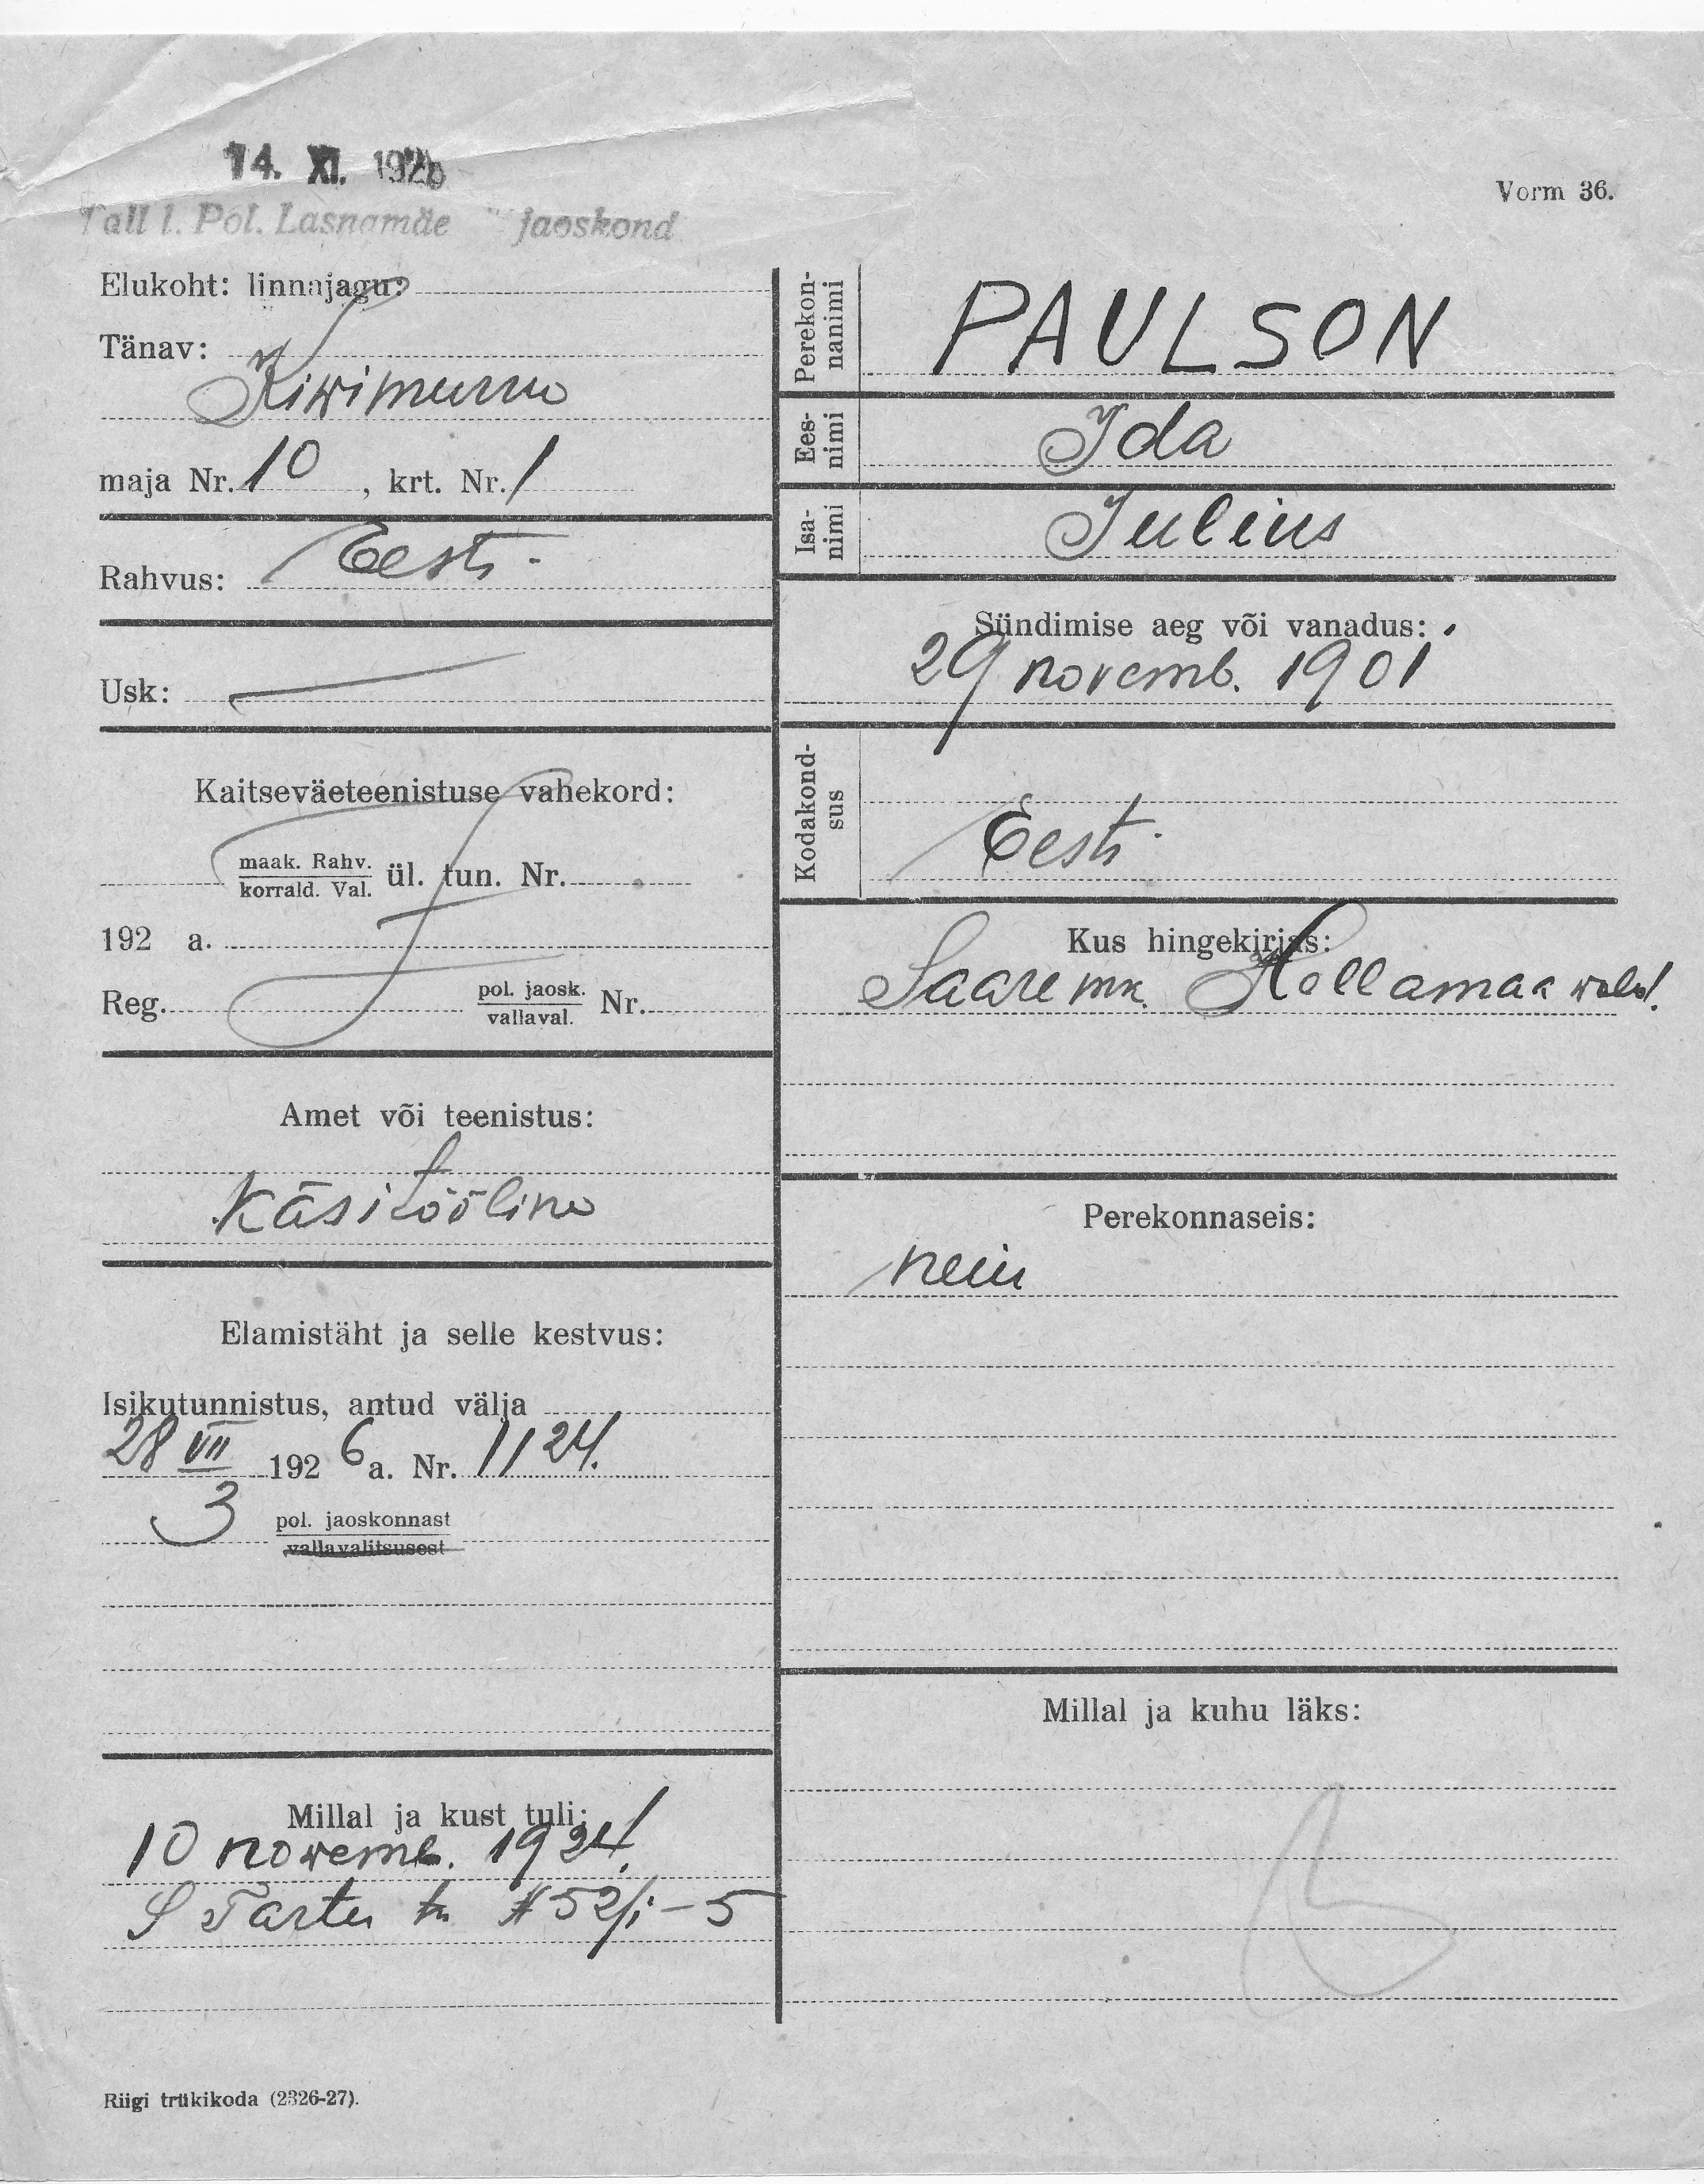 14. XI. 192
Tall l. Pol. Lasnamäe jaoskond
Vorm 36.
Elukoht: linnajagu:
Tänav:
Kiwimurru
maja Nr. 10, krt. Nr. 1
Rahvus: Eesti
Usk: —
Kaitseväeteenistuse vahekord:
maak. Rahv.
korrald. Val. ül. tun. Nr.
192 a.
Reg. pol. jaosk. Nr.
vallaval.
Amet või teenistus:
Käsitööline
Elamistäht ja selle kestvus:
Isikutunnistus, antud välja
28 VII 1926 a. Nr. 1124.
3 pol. jaoskonnast
vallavalitsusest
Millal ja kust tuli:
10 nowemb. 192
S Tartu m. #52/1-5
Riigi trükikoda (2326-27).
Perekon-
nanimi
PAULSON
Ees-
nimi
Ida
Isa-
nimi
Julius
Sündimise aeg või vanadus:
29 novemb. 1901
Kodakond-
sus
Eesti
Kus hingekirjas:
Saare mk. Hellamaa wald.
Perekonnaseis:
neiu
Millal ja kuhu läks: